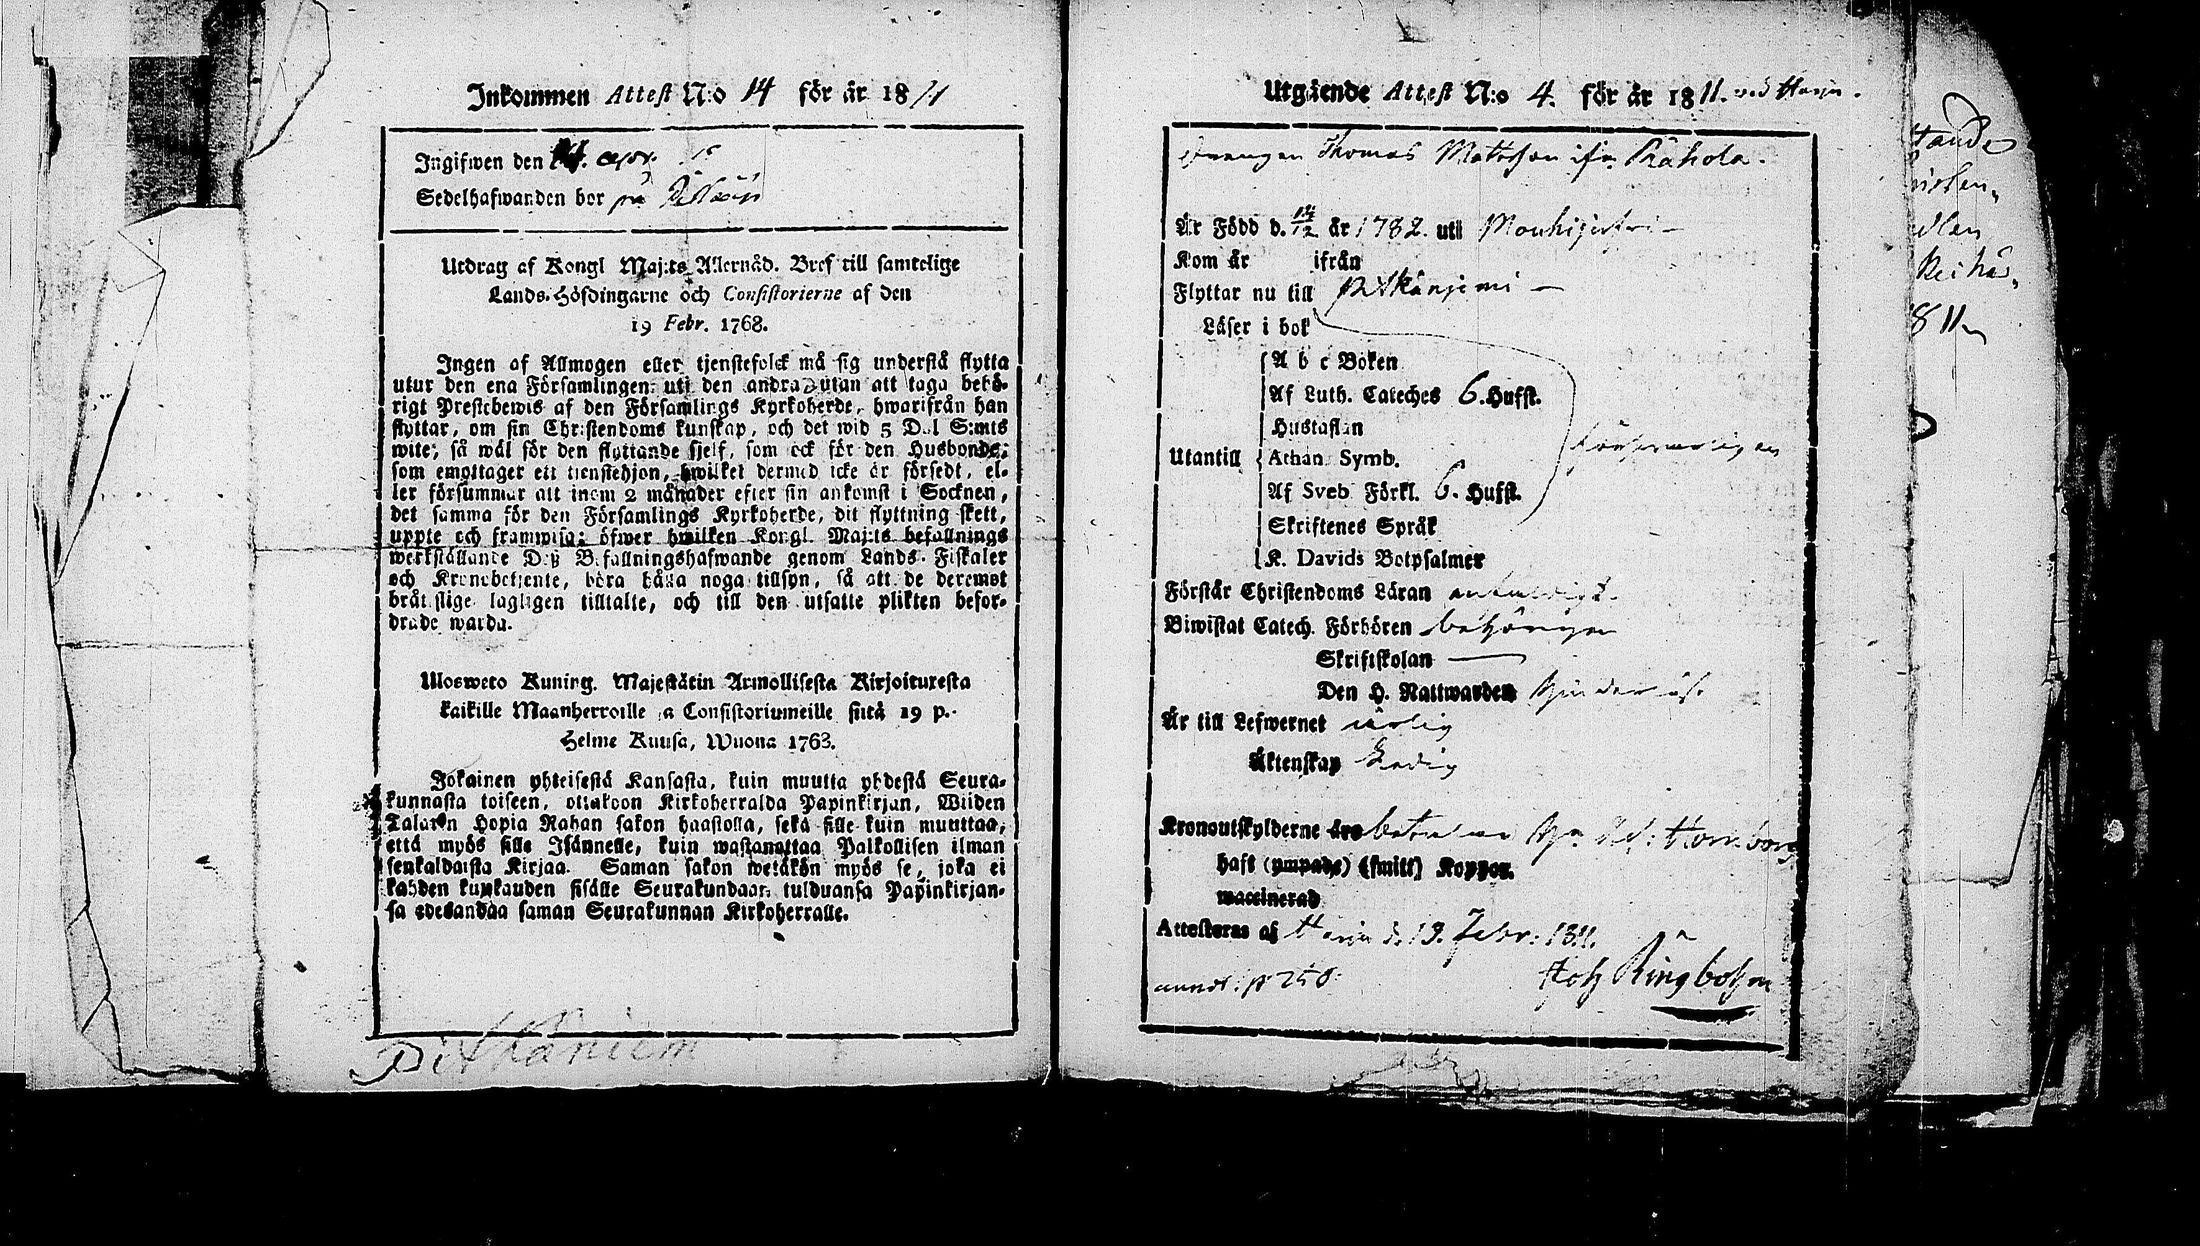 Inkommen Attest N:o 14 för år 18 11
Ingifwen den apr.
Sedelhafwanden bor på
Utdrag af Kongl Maj:ts Allernåd. Bref till samtelige
Lands-Höfdingarne och Consistorierne af den
19 Febr. 1768.
Ingen af Allmogen eller tjenstefolck må sig understå flytta
utur den ena Församlingen uti den andra utan att taga behö-
rigt Prestebewis af den Församlings Kyrkoherde, hwarifrån han
flyttar, om sin Christendoms kunskap, och det wid 5 Dal S:mts
wite; så wäl för den flyttande sjelf, som ock för den Husbonde,
som emottager ett tienstehjon, hwilket dermed icke är försedt, el-
ler försummar att inom 2 månader efter sin ankomst i Socknen,
det samma för den Församlings Kyrkoherde, dit flyttning skett,
uppte och framwisa; öfwer hwilken Kongl. Maj:ts befallnings
werkställande Deß Befallningshafwande genom Lands-Fiskaler
och Kronobetjente, böra hålla noga tillsyn, så att de deremot
bråtslige lagligen tilltalte, och till den utsatte plikten befor-
drade warda.
Ulosweto Kuning. Majestätin Armollisesta Kirjoituxesta
kaikille Maanherroille ja Consistoriumeille siitä 19 p.
Helme Kuusa, Wuona 1763.
Jokainen yhteisestä Kansasta, kuin muutta yhdestä Seura-
kunnasta toiseen, ottakoon Kirkoherralda Papinkirjan, Wiiden
Talarin Hopia Rahan sakon haastolla, sekä sille kuin muuttaa,
että myös sille Isännelle, kuin wastanottaa Palkollisen ilman
senkaldaista Kirjaa. Saman sakon wetäkön myös se, joka ei
kahden kuukauden sisälle Seurakundaan tulduansa Papinkirjan-
sa edesandaa saman Seurakunnan Kirkoherralle.
Pitkäniem
Utgående Attest N:o 4. för år 18 11. wid Harju.
Drängen Thomas Mattsson ifrn Rahola.
Är Född d. år 1782. uti Mouhijerfwi
Kom år ifrån
Flyttar nu till Pitkänjemi
Läser i bok
A b c Boken
Af Luth. Cateches 6. Hufst.
Hustaflan
Utantill Athan. Symb.
Af Sveb. Förkl. 6. Hufst.
Skriftenes Språk
K. Davids Botpsalmer
Förstår Christendoms Läran
Biwistat Catech. Förhören behörigen
Skriftskolan
Den H. Nattwarden
Är till Lefwernet ärlig
Äktenskap Ledig
Kronoutskylderne äro
haft (ympade) (smitt) Koppor.
waccinerad
Attesteras af Harju d. 19. Febr. 1811.
p 250.
Joh Ringbohm
811